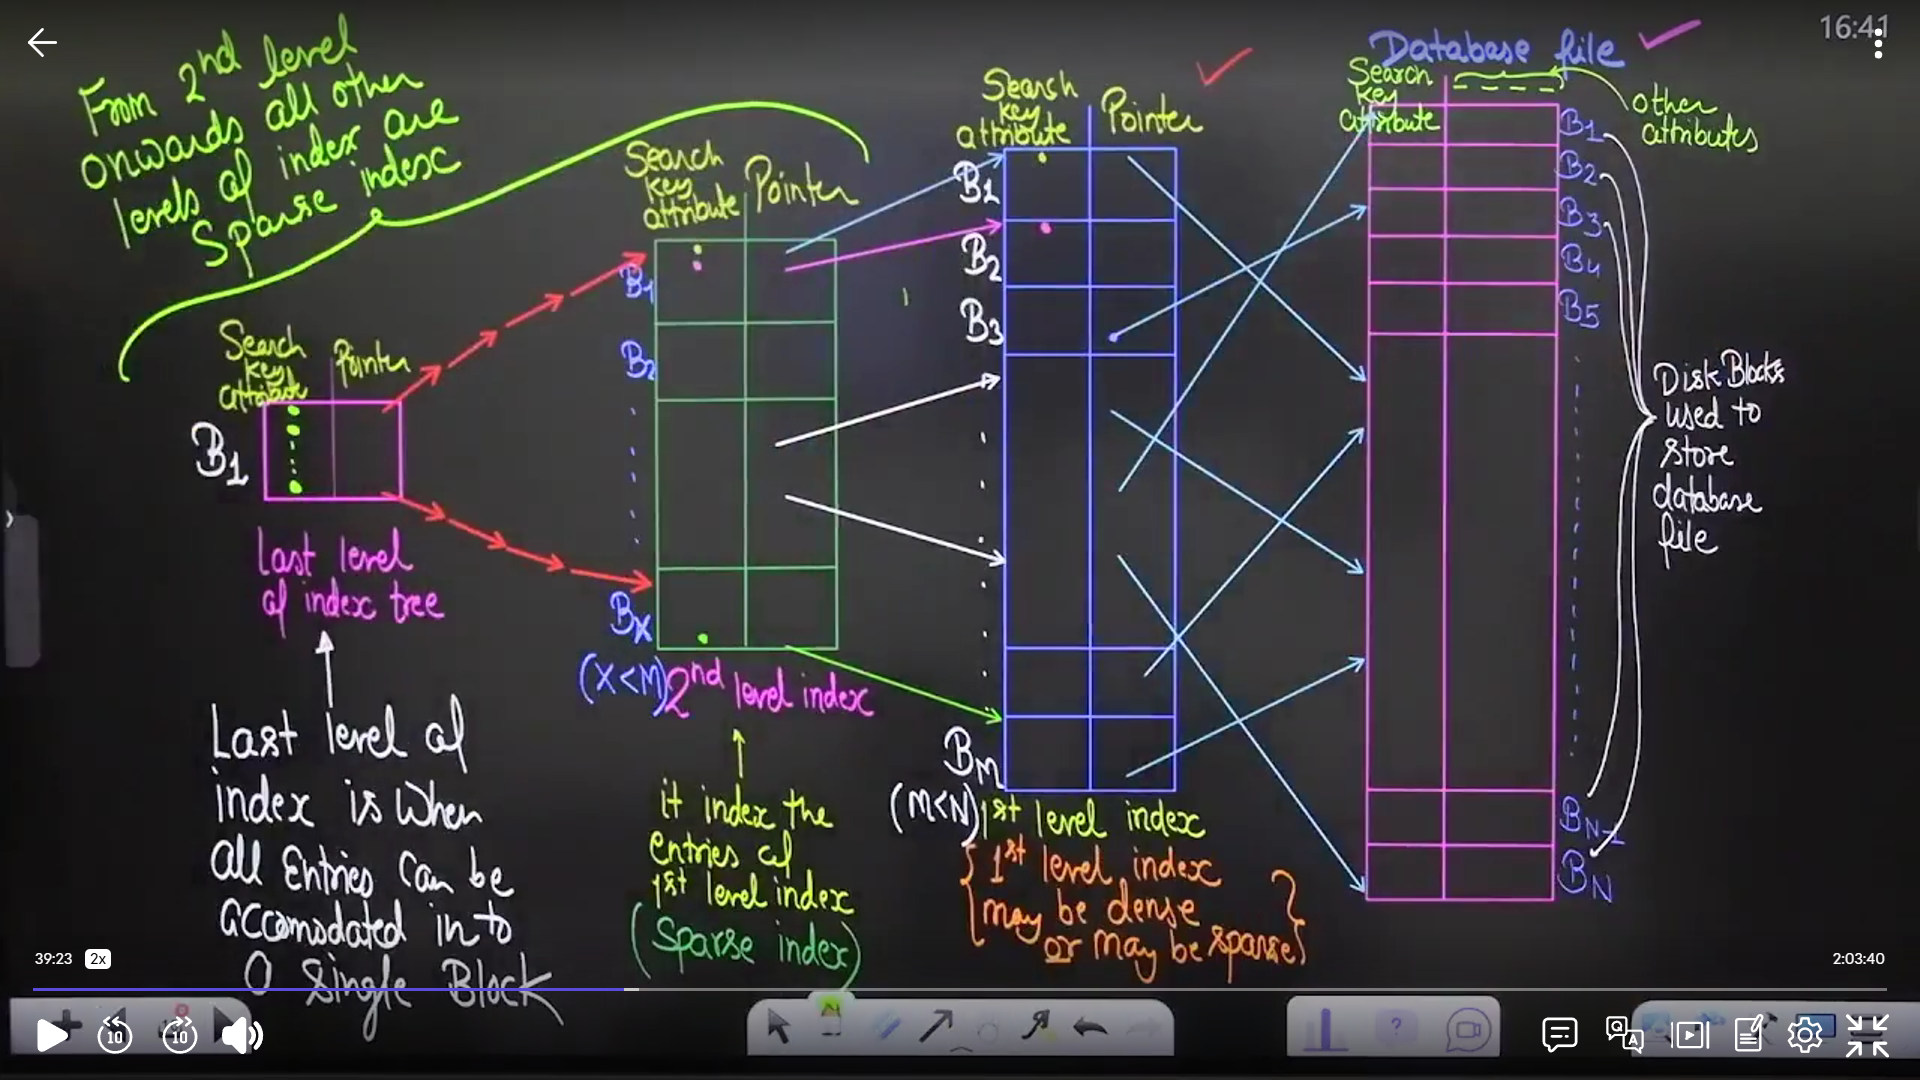 16:41
From 2nd level
onwards all other
levels of index are
Sparse index
Search
key
attribute
Pointer
B1
Last level
of index tree
Last level of
index is when
all Entries can be
accomodated in to
a single Block
Search
key
attribute
Pointer
B1
B2
BX
(X<M)
2nd level index
it index the
entries of
1st level index
(Sparse index)
Search
key
attribute
Pointer
B1
B2
B3
BM
(M<N)
1st level index
{ 1st level index
may be dense
or may be sparse}
Database file
Search
key
attribute
other
attributes
B1
B2
B3
B4
B5
BN-1
BN
Disk Blocks
used to
store
database
file
39:23
2x
2:03:40
10
10
?
Q
A